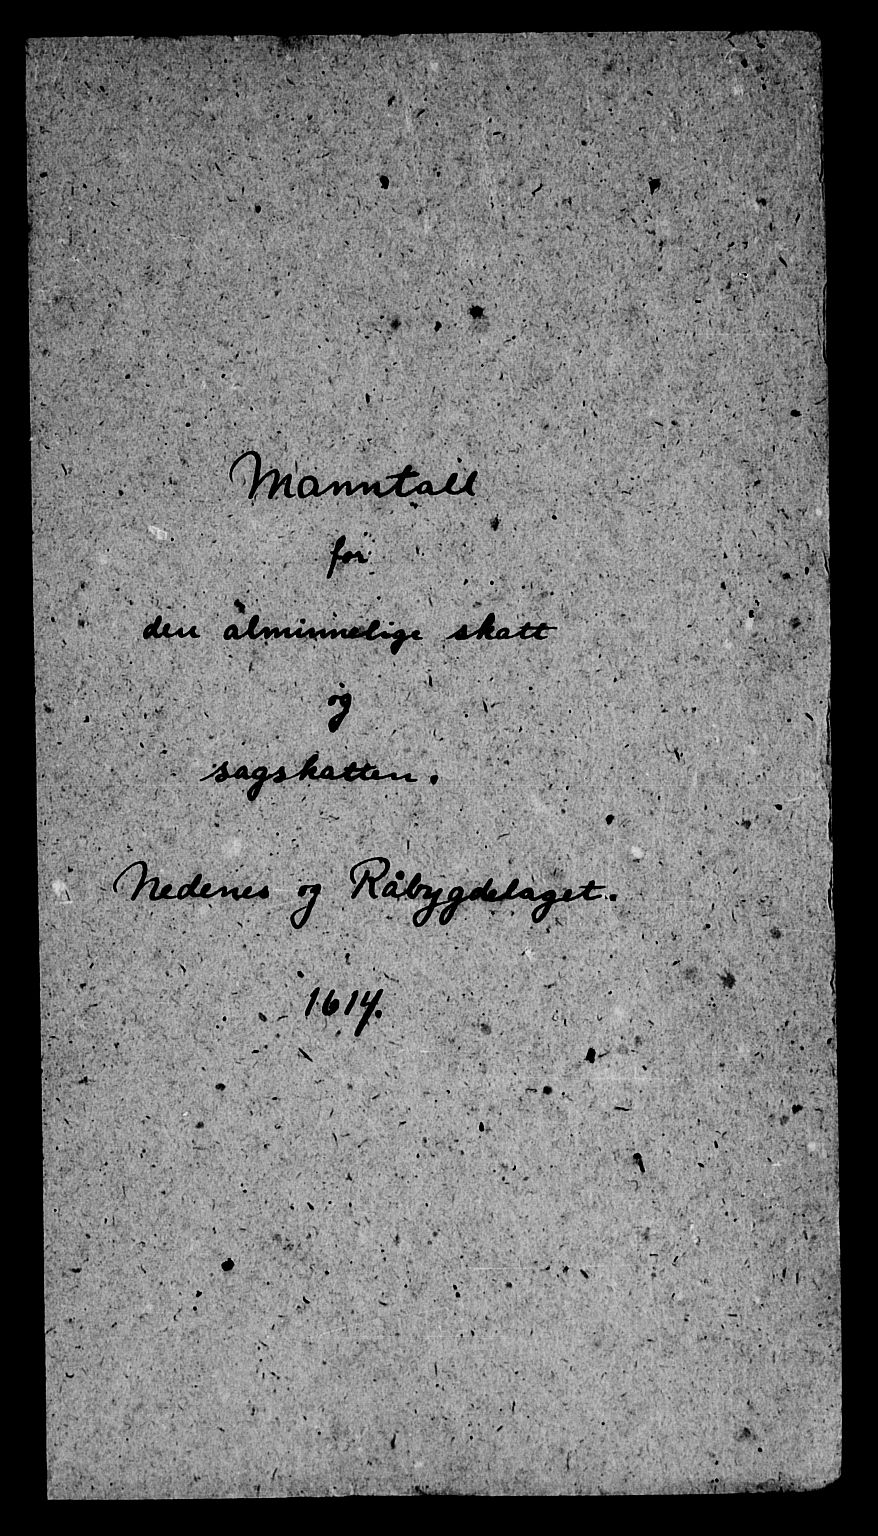 Manntall
for
den alminnelige skatt
og
sagskatten.
Nedenes og Råbygdelaget.
1614.